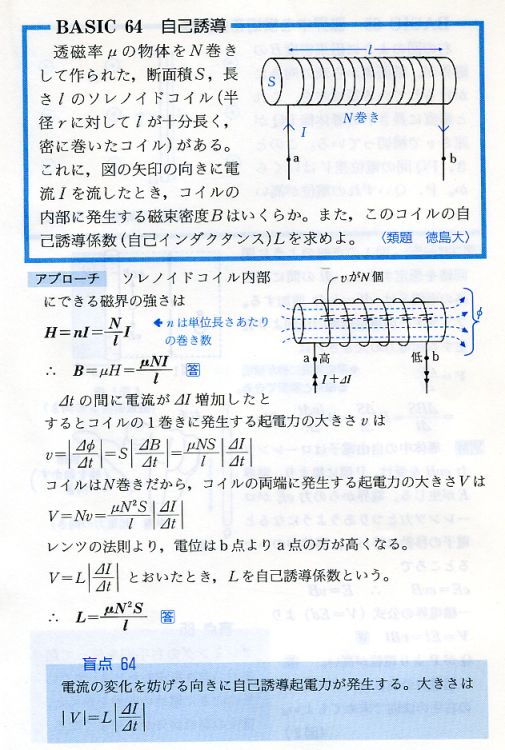 BASIC 64 自己誘導
透磁率μの物体をN巻き
して作られた，断面積S，長
さlのソレノイドコイル(半
径rに対してlが十分長く，
密に巻いたコイル)がある。
これに，図の矢印の向きに電
流Iを流したとき，コイルの
内部に発生する磁束密度Bはいくらか。また，このコイルの自
己誘導係数(自己インダクタンス)Lを求めよ。 (類題 徳島大)
l
S
N巻き
I
a
b
アプローチ ソレノイドコイル内部
にできる磁界の強さは
H=nI=N/l I ←nは単位長さあたり
の巻き数
∴ B=μH=μNI/l 答
Δtの間に電流がΔI増加したと
するとコイルの1巻きに発生する起電力の大きさvは
v=|Δφ/Δt|=S|ΔB/Δt|=μNS/l|ΔI/Δt|
vがN個
φ
a 高
低 b
I+ΔI
コイルはN巻きだから，コイルの両端に発生する起電力の大きさVは
V=Nv=μN²S/l|ΔI/Δt|
レンツの法則より，電位はb点よりa点の方が高くなる。
V=L|ΔI/Δt| とおいたとき，Lを自己誘導係数という。
∴ L=μN²S/l 答
盲点 64
電流の変化を妨げる向きに自己誘導起電力が発生する。大きさは
|V|=L|ΔI/Δt|